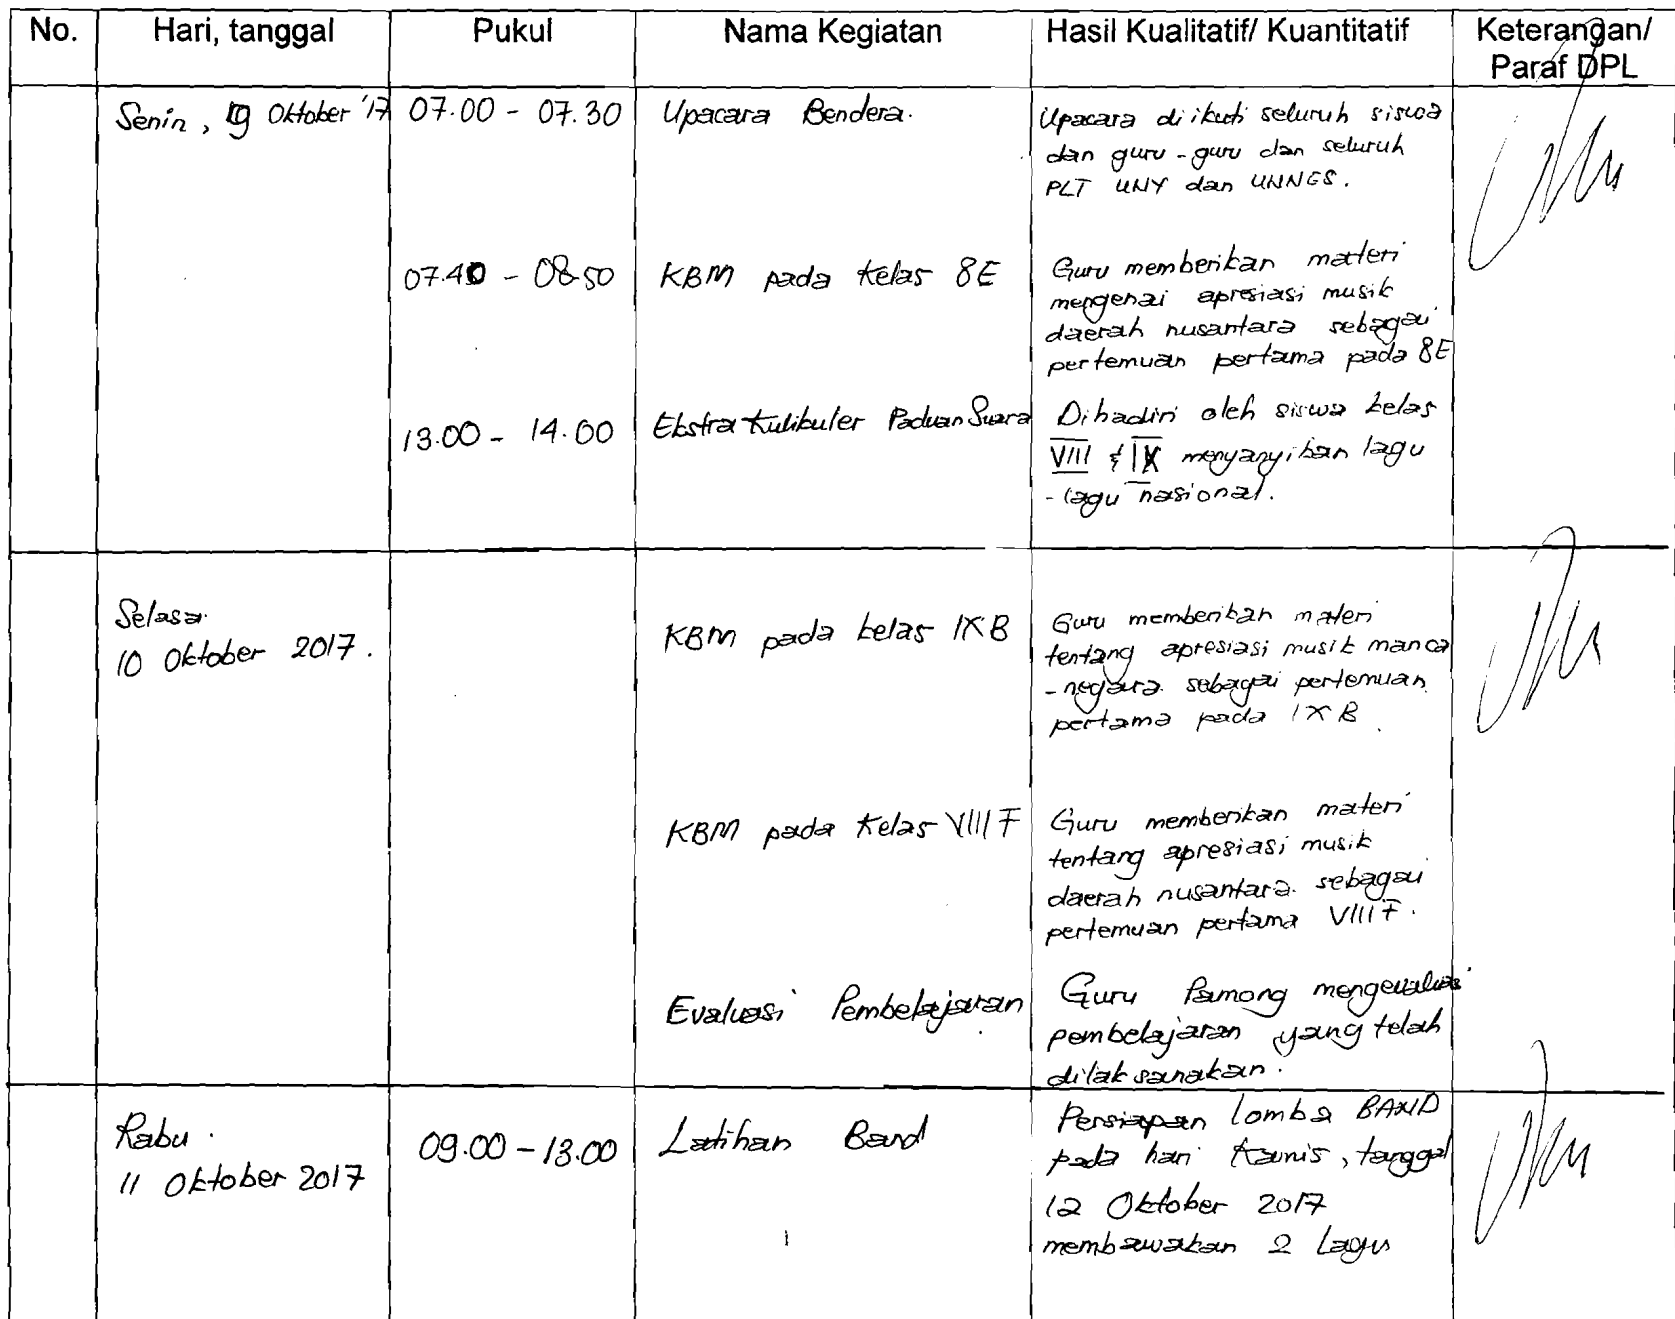 No. Hari, tanggal Pukul Nama Kegiatan Hasil Kualitatif/ Kuantitatif Keterangan/
Paraf DPL
Senin, 9 Oktober '17 07.00 - 07.30 Upacara Bendera. Upacara diikuti seluruh siswa
dan guru-guru dan seluruh
PLT UNY dan UNNES.
07.40 - 08.50 KBM pada Kelas 8E Guru memberikan materi
mengenai apresiasi musik
daerah nusantara sebagai
pertemuan pertama pada 8E
13.00 - 14.00 Ekstra Kulikuler Paduan Suara Dihadiri oleh siswa kelas
VIII & IX menyanyikan lagu
-lagu nasional.
Selasa.
10 Oktober 2017.
KBM pada kelas IXB Guru memberikan materi
tentang apresiasi musik manca
-negara sebagai pertemuan
pertama pada IX B.
KBM pada Kelas VIII F Guru memberikan materi
tentang apresiasi musik
daerah nusantara. sebagai
pertemuan pertama VIII F.
Evaluasi Pembelajaran Guru Pamong mengevaluasi
pembelajaran yang telah
dilaksanakan.
Rabu.
11 Oktober 2017
09.00 - 13.00 Latihan Band Persiapan lomba BAND
pada hari Kamis, tanggal
12 Oktober 2017
membawakan 2 Lagu